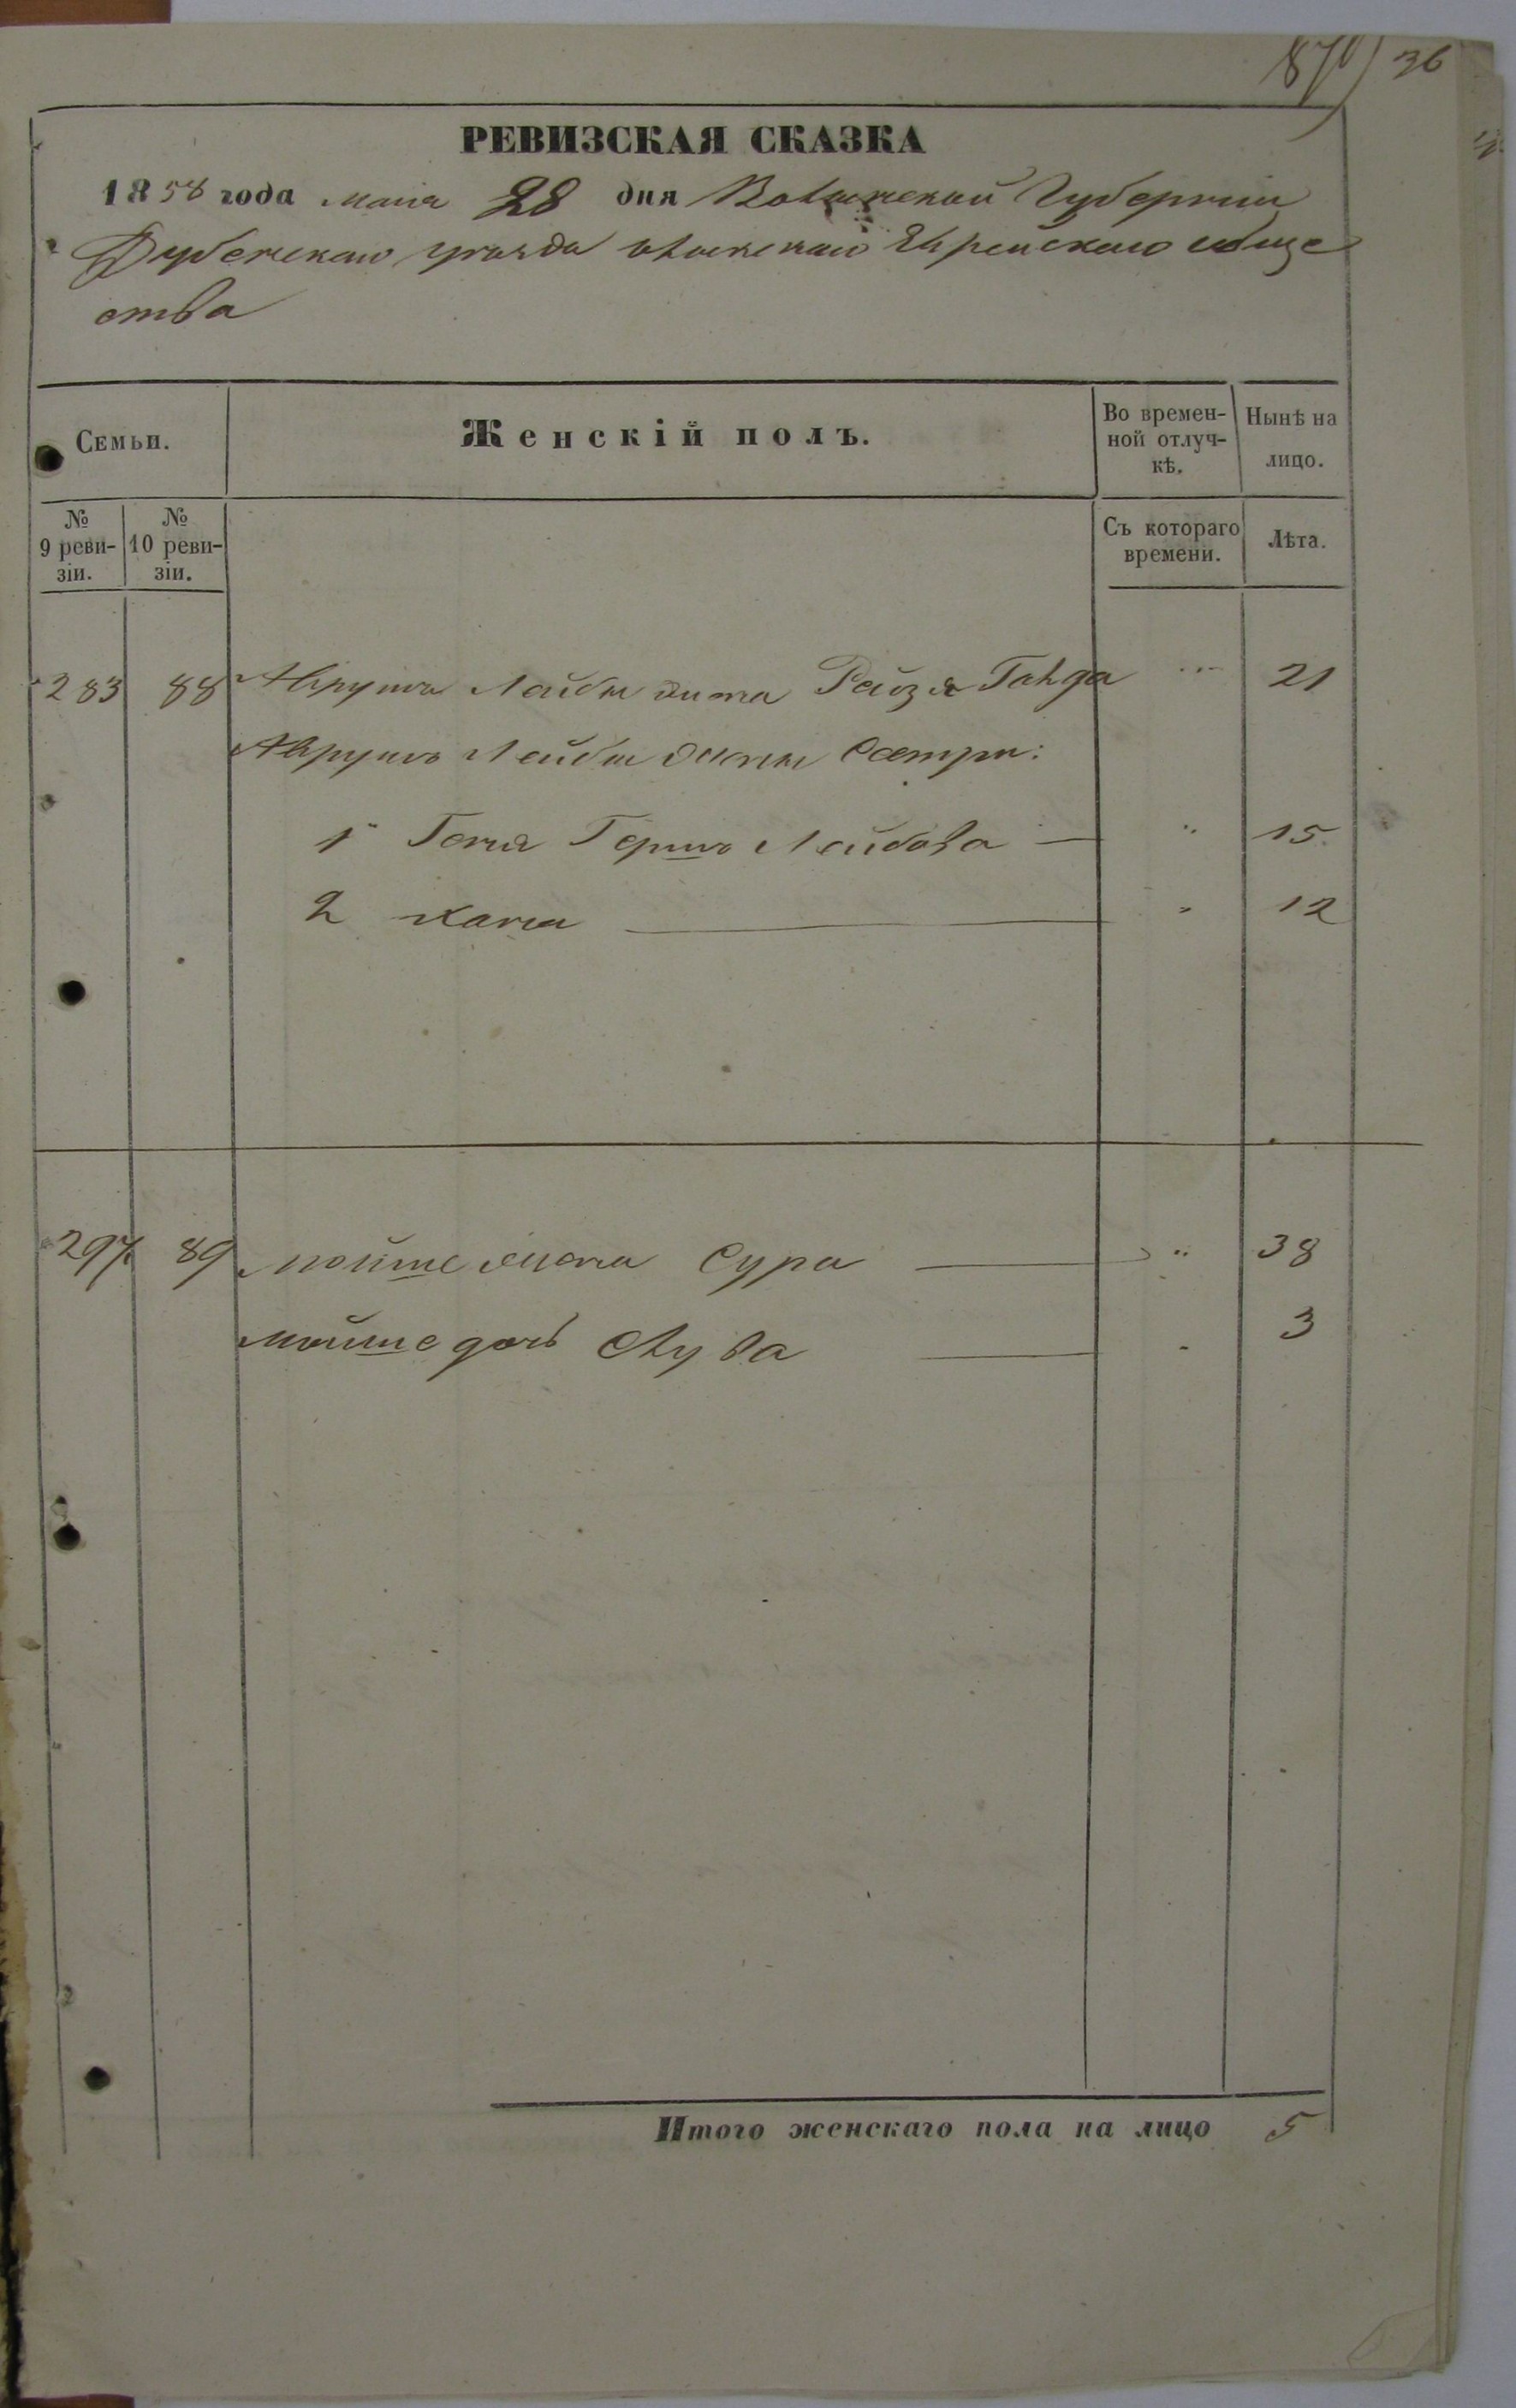 870 36
РЕВИЗСКАЯ СКАЗКА
1858 года Маия 28 дня Волынской Губернии
Дубенскаго уезда Еврейскаго обще
ства
Семьи.
Женскій полъ.
Во времен-
ной отлуч-
кѣ.
Нынѣ на
лицо.
№
9 реви-
зіи.
№
10 реви-
зіи.
Съ котораго
времени.
Лѣта.
283 88 Аврумъ Лейбы жена Рейзя 21
Аврумъ Лейбы Сестры:
1 Геня Гершъ Лейбова — " 15
2 Хана — " 12
297 89 Мойше жена Сура — " 38
Мойше дочь — " 3
Итого женскаго пола на лицо 5